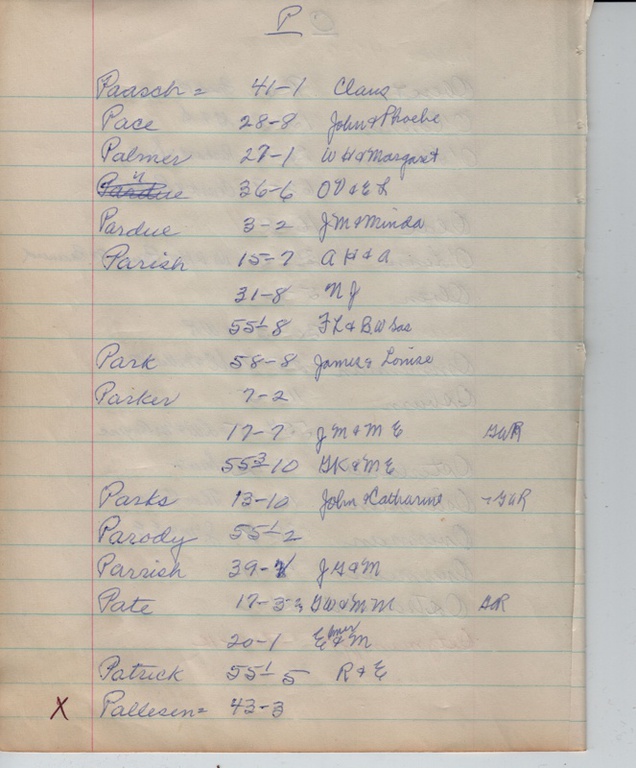 P
Paasch = 41-1 Claus
Pace 28-8 John & Phoebe
Palmer 27-1 W H & Margaret
" 36-6 O V & E L
Pardue 3-2 J M & Minda
Parish 15-7 A H & A
31-8 N J
55¹-8 F L & B.W
Park 58-8 James & Louise
Parker 7-2
17-7 J M & M E GWR
55³-10 G K & M E
Parks 13-10 John & Catharine - GWR
Parody 55¹-2
Parrish 39- J G & M
Pate 17-3 GW & M M GR
20-1 Elmer & M
Patrick 55¹-5 R & E
X Pallesen = 43-3